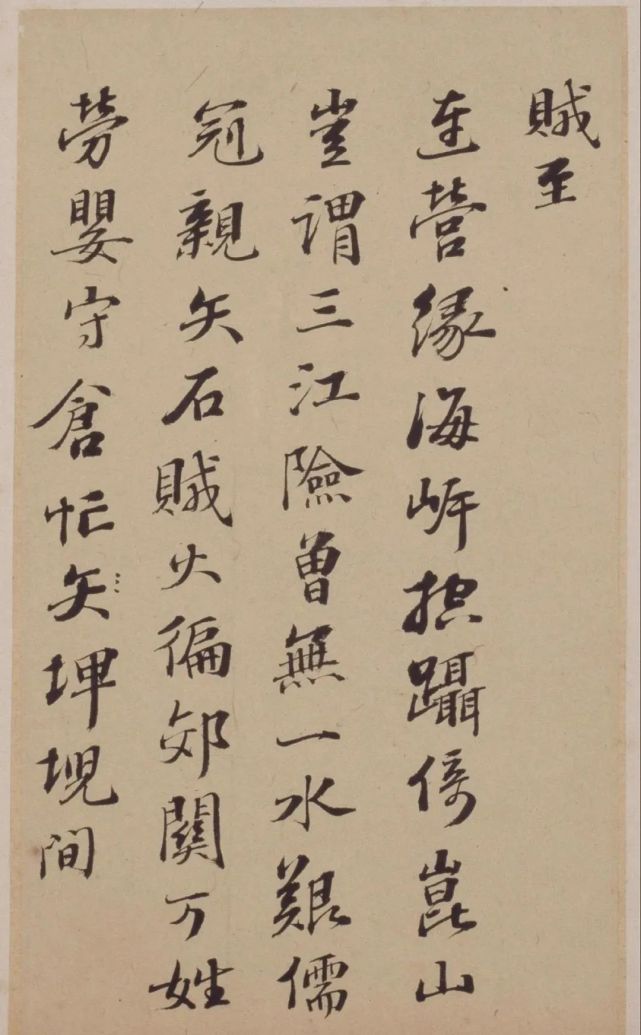 賊至
連營緣海岸控躡倚崑山
豈謂三江險曾無一水艱儒
冠親矢石賊火徧郊關万姓
勞嬰守倉忙矢埤堄間